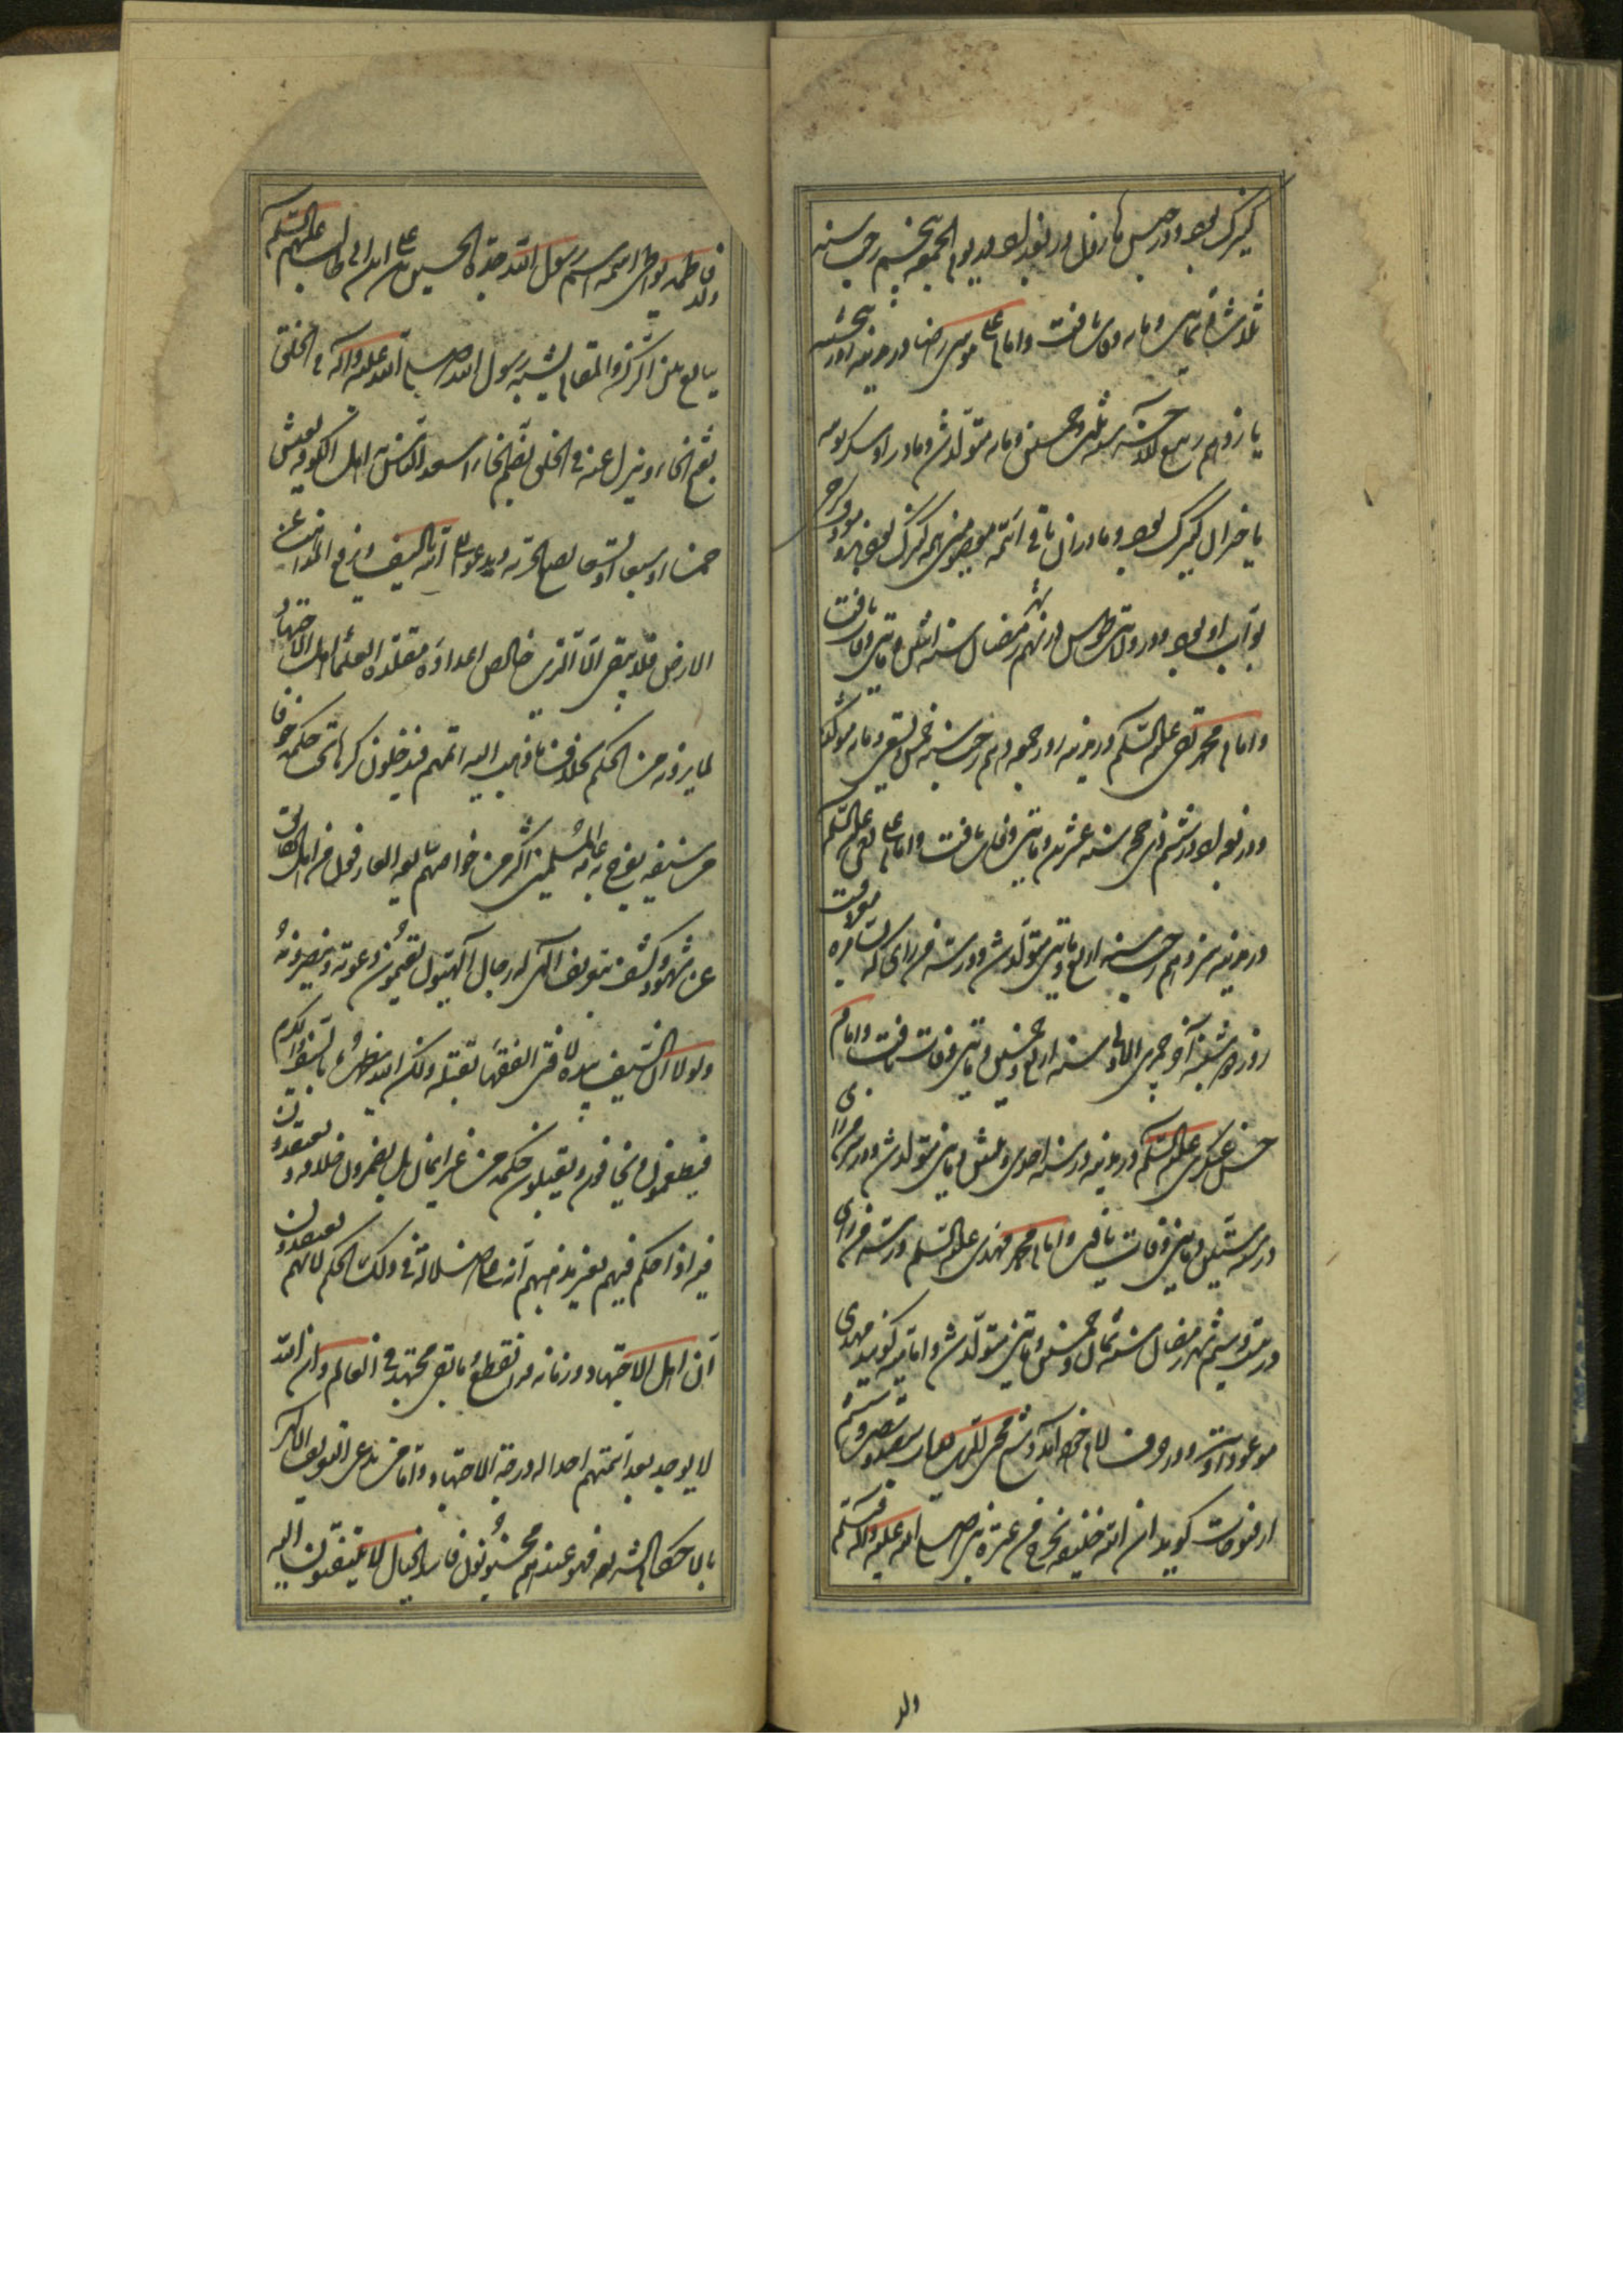 کنیزک بود و در حبس هارون در بغداد در یوم الجمعه پنجم رجب سنه
ثلاث و ثمانین و مایه وفات یافت و امام علی موسی رضا در مدینه روز پنجشنبه
یازدهم ربیع الآخر سنه ثلث و خمسین و مایه متولد شد و مادر او
یا خیزران کنیزک بود و مادران باقی ائمه معصومین همه کنیزک بودند
بواب او بود و در ولایت طوس در نهم شهر رمضان سنه اثنین و مایتین وفات یافت
و امام محمد تقی علیه السلم در مدینه روز جمعه دهم رجب سنه خمس و تسعین و مایه متولد شد
و در بغداد در ششم ذی حجه سنه عشرین و مایتین وفات یافت و امام علی نقی علیه السلم
در مدینه سیزدهم رجب سنه اربع و مایتین متولد شد و در سر من رای که سامره
روز دوشنبه آخر جمادی الاول سنه اربع و خمسین و مایتین وفات یافت و امام
حسن عسکری علیه السلم در مدینه در سنه احدی و ثلثین و مایتین متولد شد و در سر من رای
در سنه ستین و مایتین وفات یافت و امام محمد مهدی علیه السلم در سر من رای
در بیست و سیم شهر رمضان سنه ثمان و خمسین و مایتین متولد شد و امامیه گویند مهدی
موعود اوست و در شیخ محی الدین در باب سیصد و شصت و ششم
از فتوحات گوید ان الله خلیفه یخرج من عترة نبی صلی الله علیه و آله و سلم
ولد
ولد فاطمه یواطی اسمه اسم رسول الله جده الحسین بن علی ابن ابی طالب علیهم السلم
یبایع بین الرکن و المقام یشبه رسول الله صلی الله علیه و آله فی الخلق
بفتح الخاء و ینزل عنه فی الخلق بضم الخاء اسعد الناس به اهل الکوفه یعیش
خمسا او سبعا او تسعا یضع الجزیه و یدعو الی الله بالسیف و یرفع المذاهب عن
الارض فلا یبقی الا الدین خالص اعداؤه مقلده العلماء اهل الاجتهاد
لما یرونه من الحکم بخلاف ما ذهب الیه ائمتهم فیدخلون کرها تحت حکمه خوفا
من سیفه یفرح به عامه المسلمین اکثر من خواصهم یبایعه العارفون من اهل الحقایق
عن شهود و کشف بتعریف الهی له رجال الهیون یقیمون دعوته و ینصرونه
و لولا ان السیف بیده لافتی الفقهاء بقتله و لکن الله یظهره بالسیف و الکرم
فیطمعون و یخافون و یقبلون حکمه من غیر ایمان بل یضمرون خلافه و یعتقدون
فیه اذا حکم فیهم بغیر مذهبهم انه علی ضلاله فی ذلک الحکم لانهم یعتقدون
ان اهل الاجتهاد و زمانه قد انقطع و ما بقی مجتهد فی العالم و ان الله
لا یوجد بعد ائمتهم احدا له درجة الاجتهاد و اما من یدعی التعریف الالهی
بالاحکام الشرعیه فهو عندهم مجنون فاسد الخیال لا یلتفتون الیه